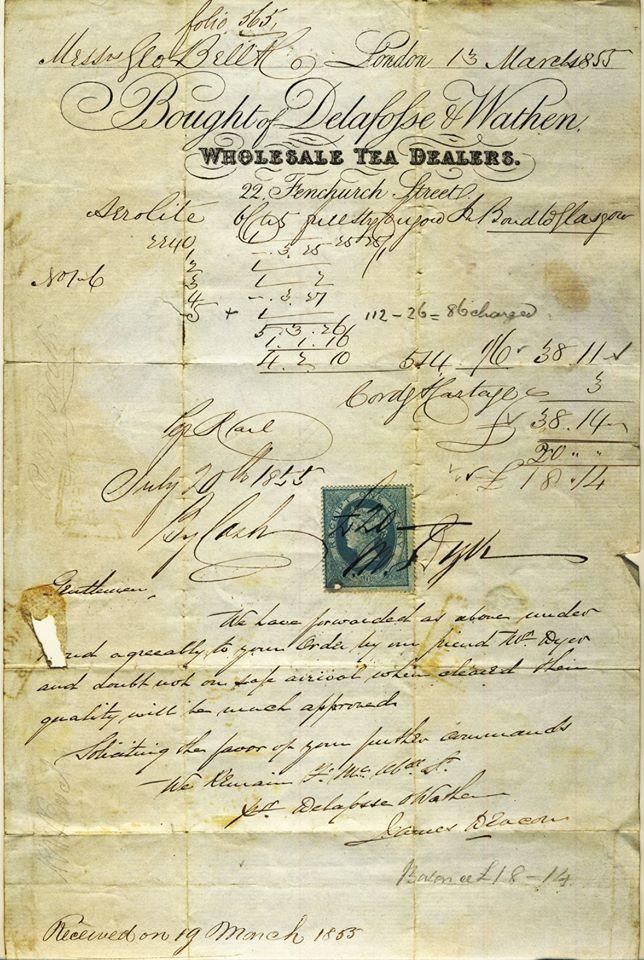 folio 365.
Messrs Geo Bell & Co London 13 March 1855
Bought of Delafosse & Wathen.
WHOLESALE TEA DEALERS.
22, Fenchurch Street.
Aerolite In Bond to Glasgow
2240 1
2
No 1-6 3 1
4
5 + 1
112 - 26 = 86 charged
5. 3. 26
1. 1. 16
4. 2 10 514 1/6 38. 11
Cordg & Cartage & 3
£ 38. 14
20 " "
£ 18. 14
July 20th 1855
By Cash
Wm Dyer
Gentlemen,
We have forwarded as above under
Bond agreeably to your Order by our friend Wm Dyer
and doubt not on safe arrival when cleared their
quality will be much approved
Soliciting the favor of your further commands
We Remain
pr Delafosse & Wathen
James Deacon
Balance £18-14
Received on 19 March 1855